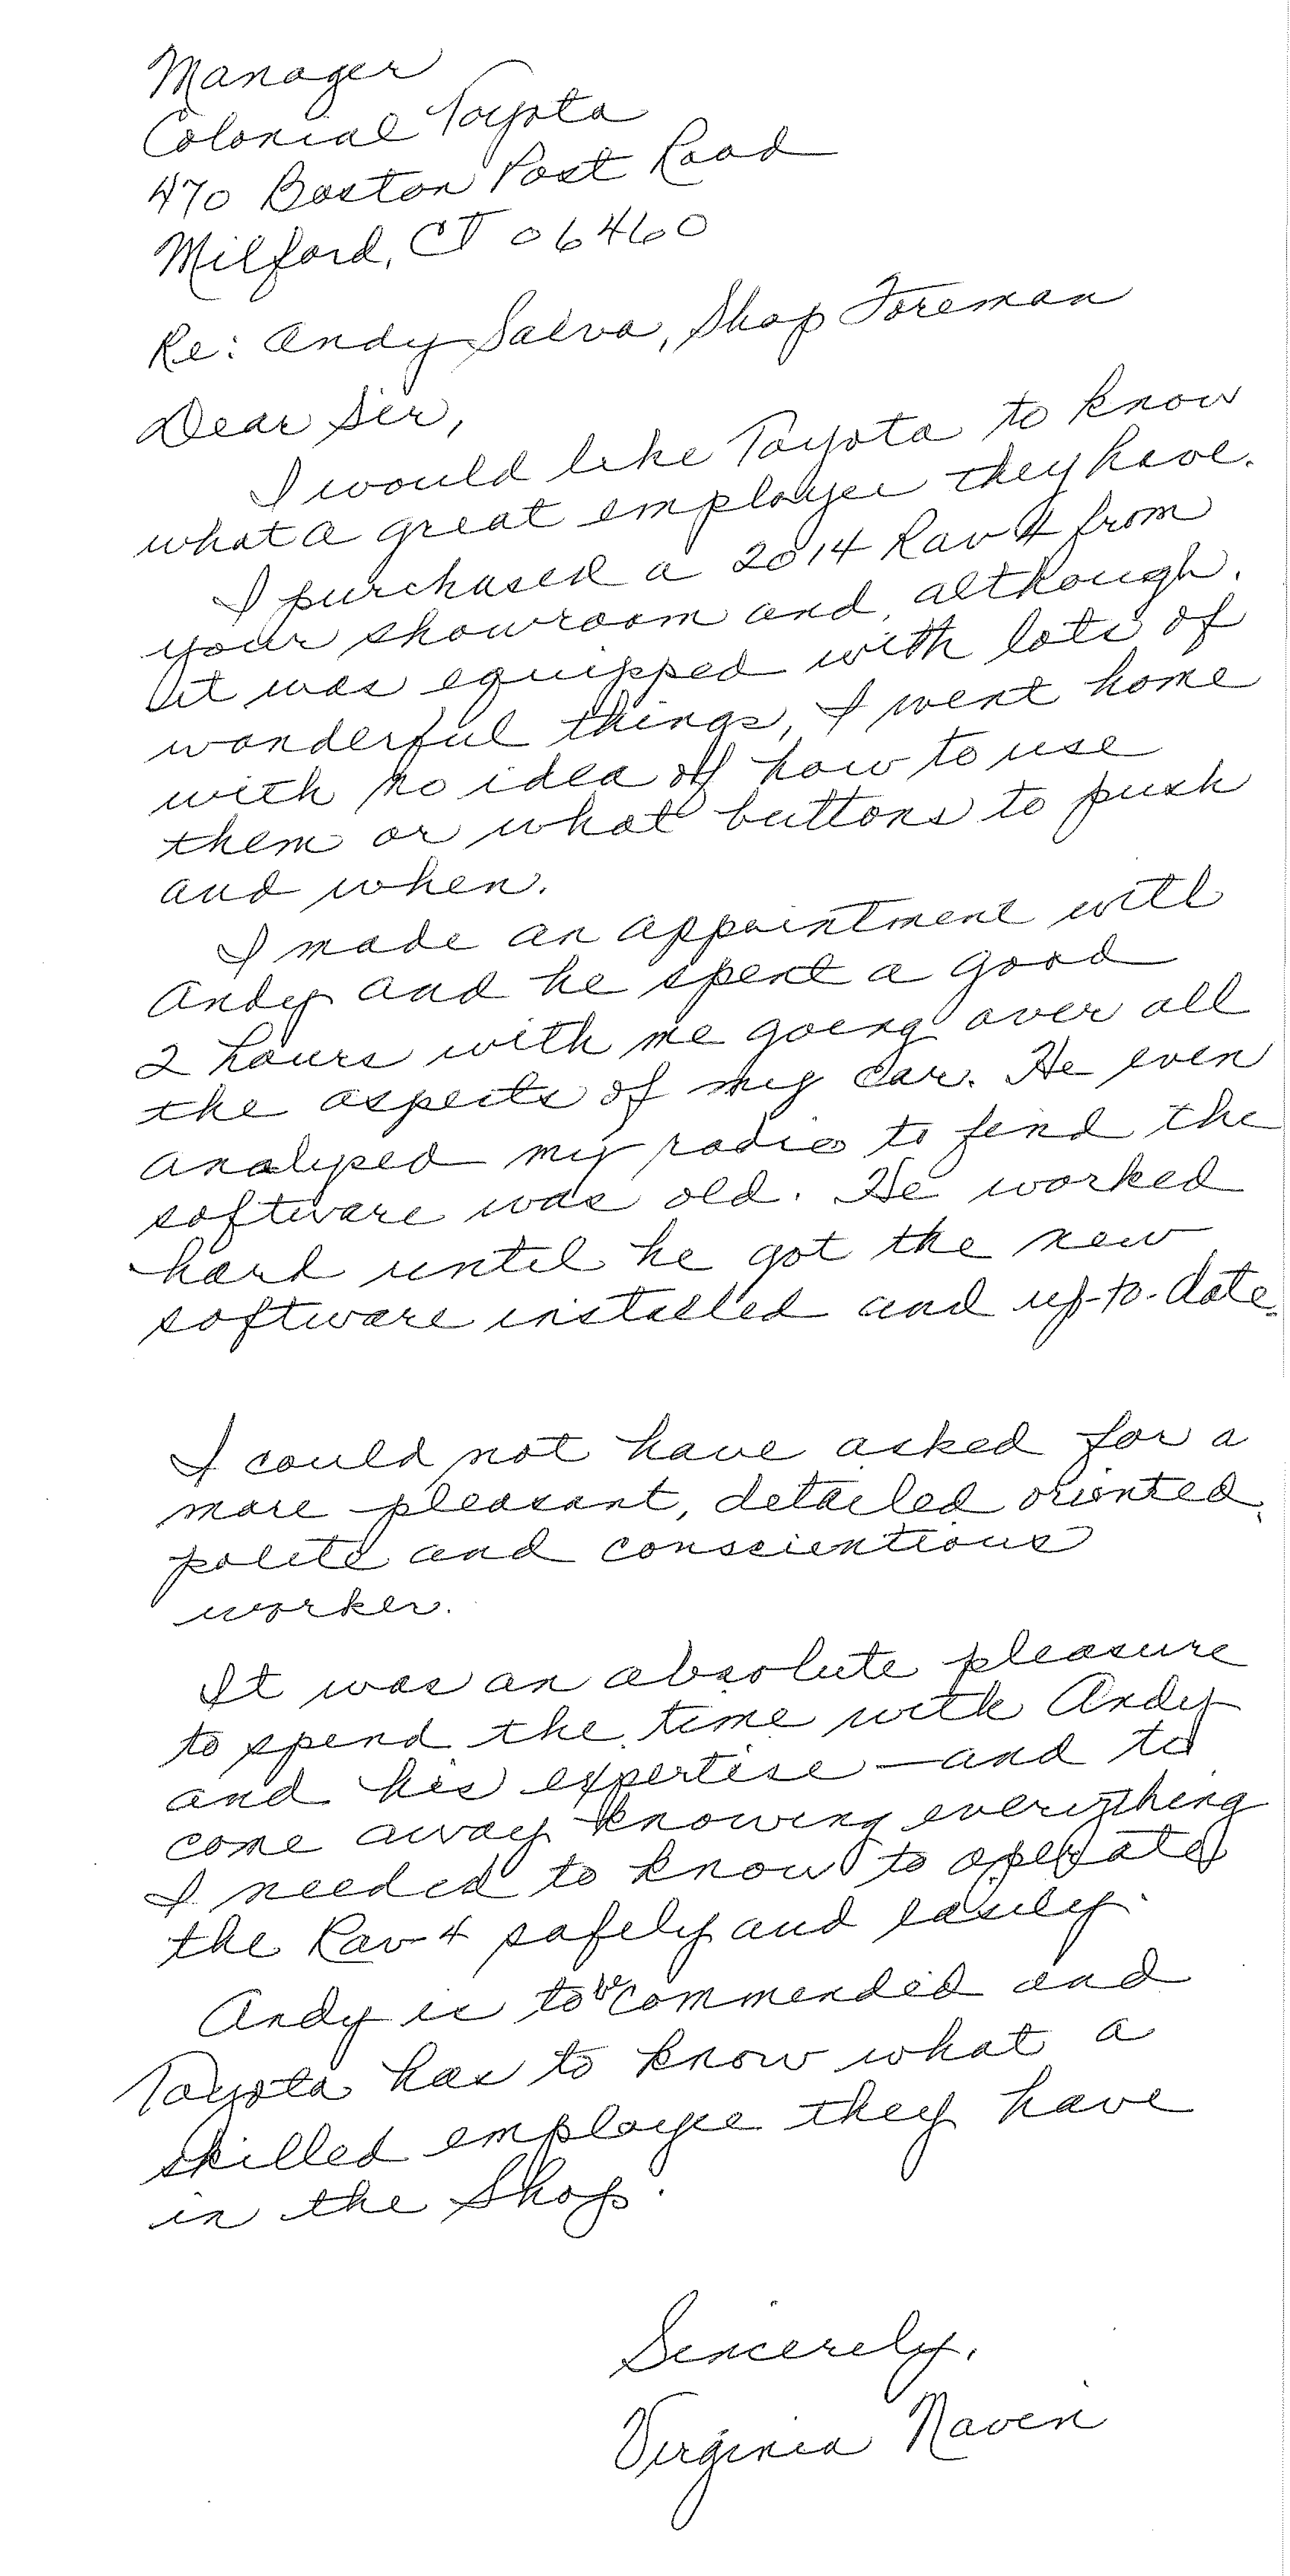 Manager
Colonial Toyota
470 Boston Post Road
Milford, CT 06460
Re: Andy Salva, Shop Foreman
Dear Sir,
I would like Toyota to know
what a great employee they have.
I purchased a 2014 Rav 4 from
your showroom and, although,
it was equipped with lots of
wonderful things, I went home
with no idea of how to use
them or what buttons to push
and when.
I made an appointment with
Andy and he spent a good
2 hours with me going over all
the aspects of my car. He even
analyzed my radio to find the
software was old. He worked
hard until he got the new
software installed and up-to-date.
I could not have asked for a
more pleasant, detailed oriented,
polite and conscientious
worker.
It was an absolute pleasure
to spend the time with Andy
and his expertise - and to
come away knowing everything
I needed to know to operate
the Rav 4 safely and easily.
Andy is to be commended and
Toyota has to know what a
skilled employee they have
in the Shop.
Sincerely,
Virginia Naven